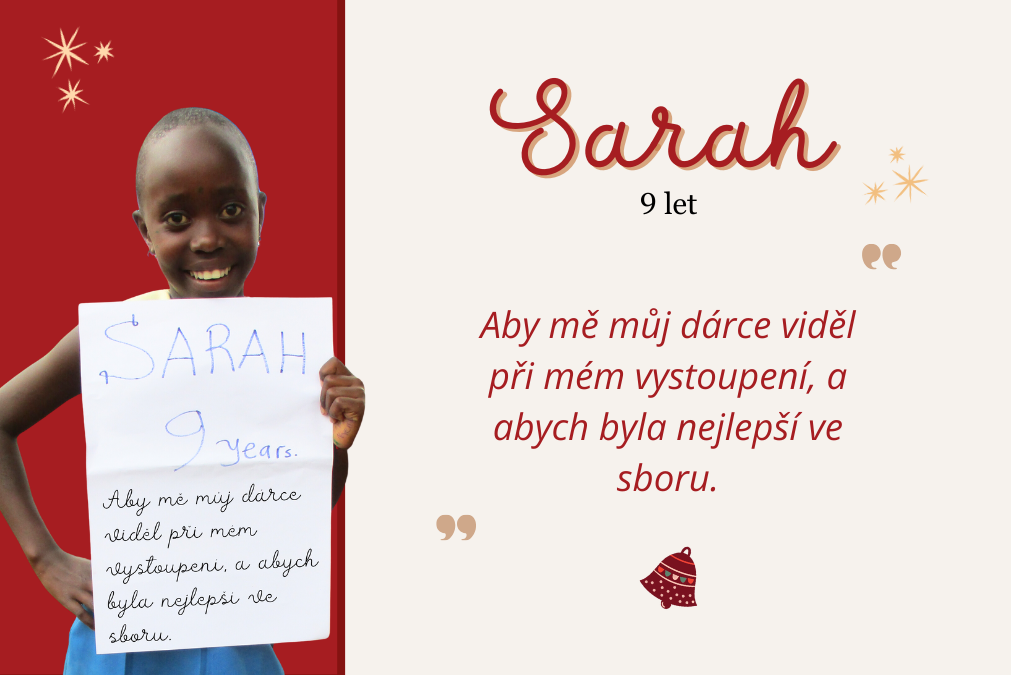 SARAH
9 years.
Aby mě můj dárce
viděl při mém
vystoupení, a abych
byla nejlepší ve
sboru.
Sarah
9 let
Aby mě můj dárce viděl
při mém vystoupení, a
abych byla nejlepší ve
sboru.